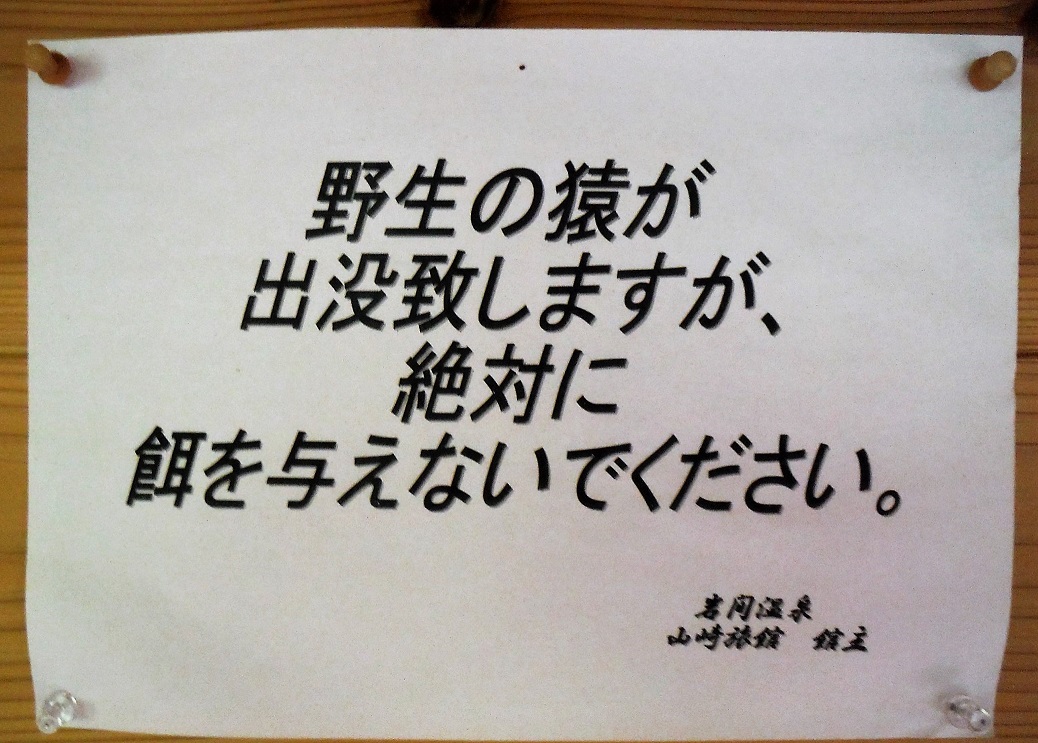 野生の猿が
出没致しますが、
絶対に
餌を与えないでください。
岩間温泉
山崎旅館　館主